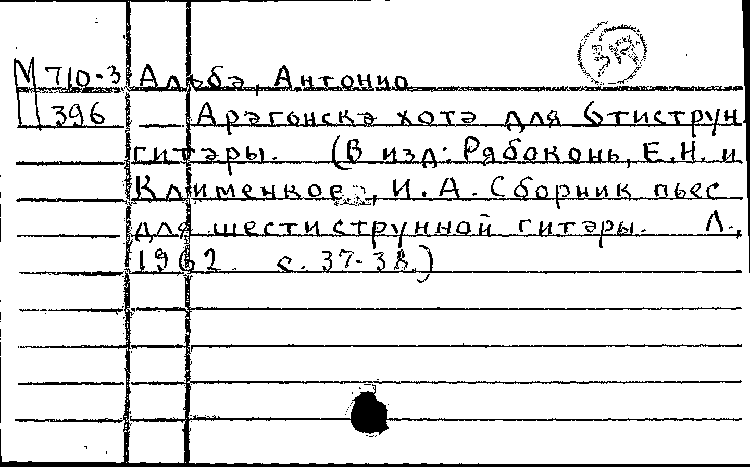 М 710-3 Альба, Антонио
П 396 Арагонска хота для 6тиструн.
гитары. (В изд: Рябоконь, Е.Н. и
Клименков, И.А. Сборник пьес
для шестиструнной гитары. Л.,
1962. с. 37-38.)